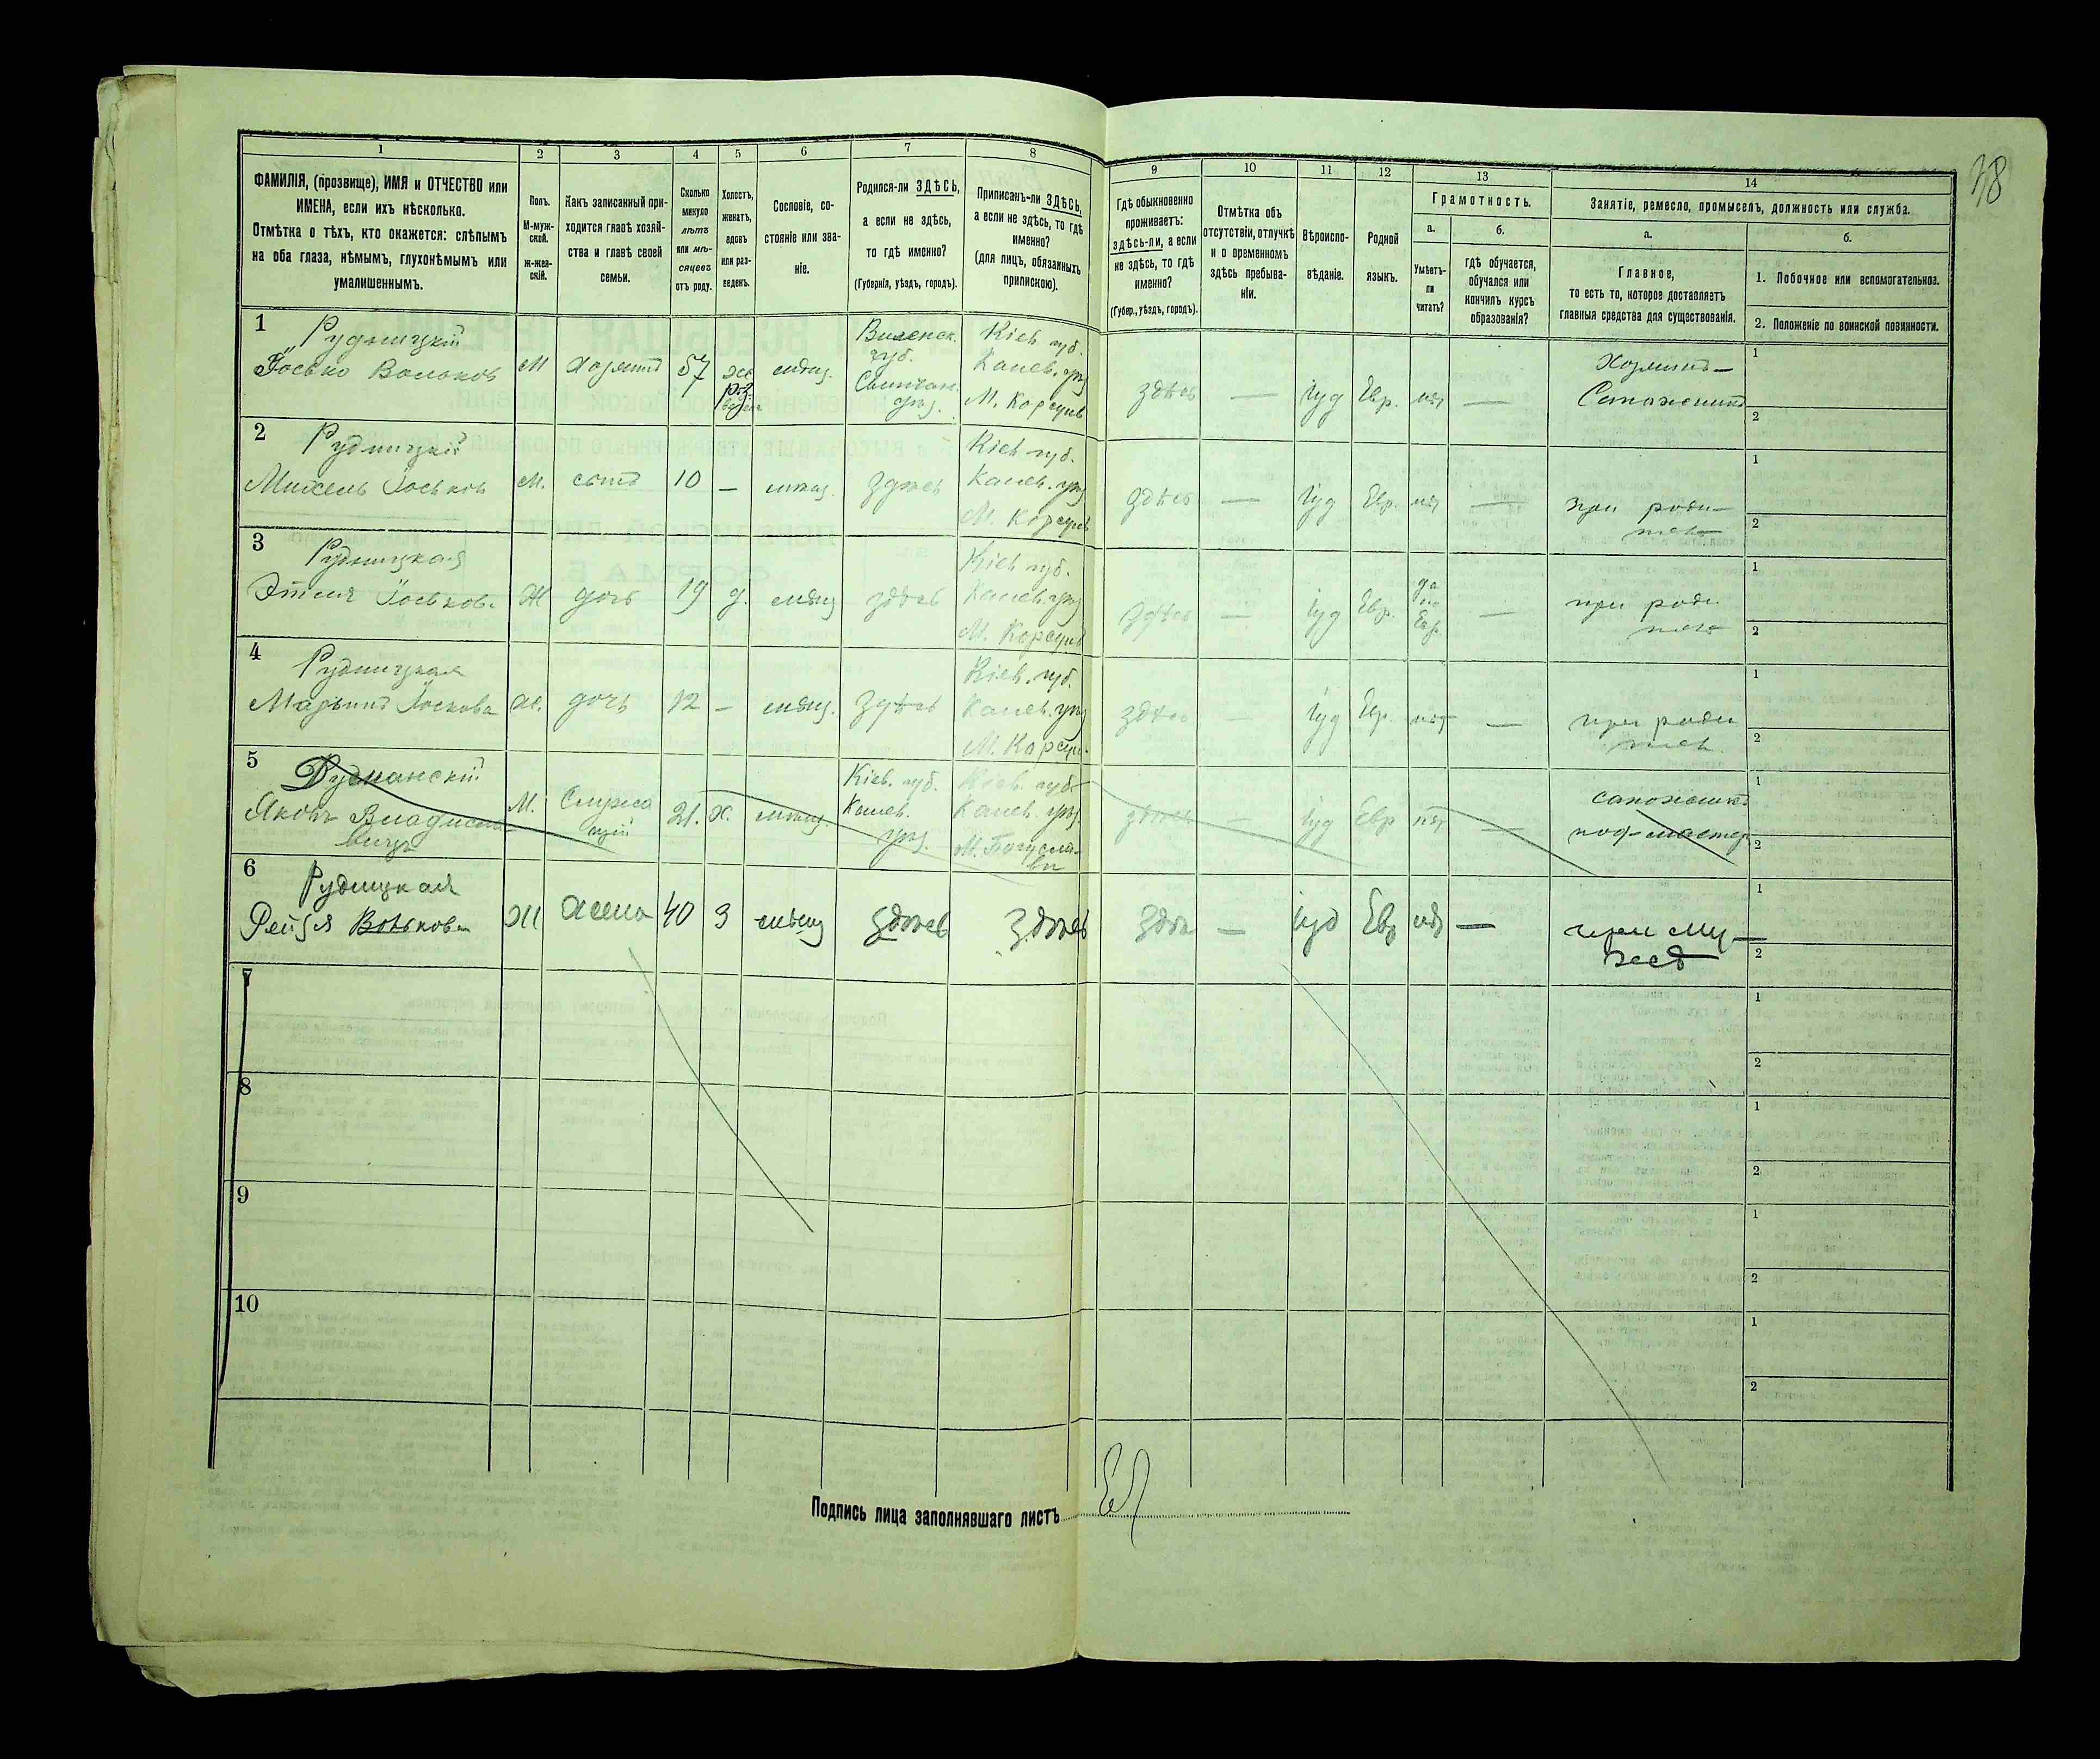 38
1 2 3 4 5 6 7 8 9 10 11 12 13 14
ФАМИЛІЯ, (прозвище), ИМЯ и ОТЧЕСТВО или
ИМЕНА, если ихъ нѣсколько.
Отмѣтка о тѣхъ, кто окажется: слѣпымъ
на оба глаза, нѣмымъ, глухонѣмымъ или
умалишеннымъ.
Полъ.
М-муж-
ской.
Ж-жен-
скій.
Какъ записанный при-
ходится главѣ хозяй-
ства и главѣ своей
семьи.
Сколько
минуло
лѣтъ
или мѣ-
сяцевъ
отъ роду.
Холостъ,
женатъ,
вдовъ
или раз-
веденъ.
Сословіе, со-
стояніе или зва-
ніе.
Родился-ли ЗДѢСЬ,
а если не здѣсь,
то гдѣ именно?
(Губернія, уѣздъ, городъ).
Приписанъ-ли ЗДѢСЬ,
а если не здѣсь, то гдѣ
именно?
(для лицъ, обязанныхъ
припискою).
Гдѣ обыкновенно
проживаетъ:
здѣсь-ли, а если
не здѣсь, то гдѣ
именно?
(Губер., уѣздъ, городъ).
Отмѣтка объ
отсутствіи, отлучкѣ
и о временномъ
здѣсь пребыва-
ніи.
Вѣроиспо-
вѣданіе.
Родной
языкъ.
Грамотность.
а.
Умѣетъ-
ли
читать?
б.
гдѣ обучается,
обучался или
кончилъ курсъ
образованія?
Занятіе, ремесло, промыселъ, должность или служба.
а.
Главное,
то есть то, которое доставляетъ
главныя средства для существованія.
б.
1. Побочное или вспомогательное.
2. Положеніе по воинской повинности.
1
Рудницкій
Іосько Вольков
М хозяинъ 57 ж мѣщ.
Виленск.
губ.
Свинцян.
уѣз.
Кіев губ.
Канев. уѣз
М. Корсунь
здѣсь — Іуд Евр. нѣт —
Хозяинъ—
Сапожникъ
1
2
2
Рудницкій
Михель Іоськов
М. сынъ 10 — мѣщ. здѣсь
Кіев губ.
Канев. уѣз
М. Корсунь
здѣсь — Іуд Евр. нѣт —
при роди-
1
2
3
Рудницкая
Іоськов.
Ж дочь 19 д. мѣщ здѣсь
Кіев губ.
Канев. уѣз
М. Корсунь
здѣсь — Іуд Евр.
да
по
Евр.
—
при роди
1
2
4
Рудницкая
Іоськова
ж. дочь 12 — мѣщ. здѣсь
Кіев. губ.
Канев. уѣз
М. Корсун.
здѣсь — Іуд Евр. нѣт —
при роди
1
2
5
Яковъ
М. 21. х. мѣщ.
Кіев. губ.
Канев.
уѣз.
Кіев. губ.
Канев. уѣз.
М. Богусла-
въ
здѣсь — Іуд Евр нѣт —
сапожник
под-мастер
1
2
6
Рудницкая
Рейзя Волькова
Ж жена 40 З мѣщ здѣсь здѣсь
здѣсь — Іуд Евр нѣт —
при му-
жѣ
1
2
7
1
2
8
1
2
9
1
2
10
1
2
Подпись лица заполнявшаго листъ